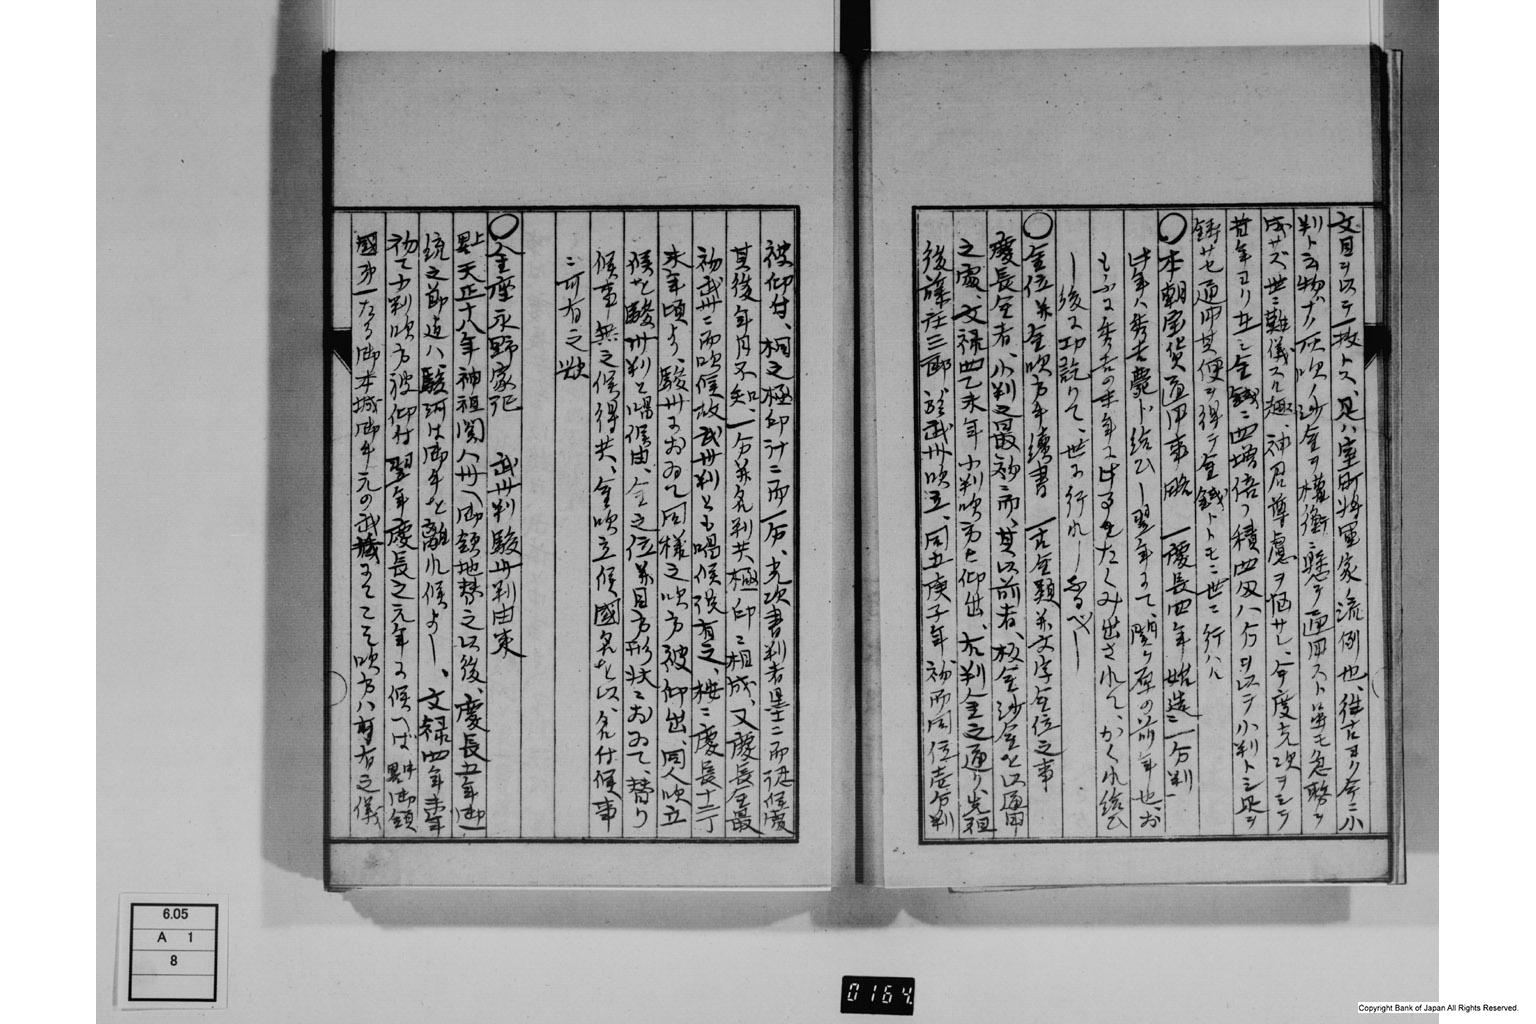 文目ヲ以テ一枚トス、是ハ室町将軍家ノ流例也、往古ヨリ今ニ小
判ト云物ナク、灰吹ノ沙金ヲ權衡ニ懸テ通用スト
成サズ、世ニ難儀スル趣、神君尊慮ヲ悩サレ、今度光次ヲシテ
昔年ヨリ
鋳サセ通用其便ヲ得テ金銭トトモニ世ニ行ハル
○本朝宝貨通用事略 一慶長四年始造ニ一分判一
此年ハ秀吉薨ト給ヒし翌年にて、関ヶ原の前年也、
秀吉の未年に此事をたくみ出されて、かくれ給ひ
し後に功訖りて、世に行れしなるべし
○金位并金吹方手續書 一古金類并文字金位之事
慶長金者、小判之最初ニ而、其以前者、板金沙金を以通用
之處、文禄四乙未年小判吹方被仰出、右判金之通り、先祖
後藤庄三郎於武州吹立、同五庚子年初而同位壱分判
被仰付、桐之極印計ニ而一分、光次書判者墨ニ而認候處
其後年月不知、一分并書判共極印ニ相成、又慶長金最
初武州ニ而吹候故武州判とも唱候段有之、按ニ慶長十二丁
未年頃より、駿州におゐて同様之吹方被仰出、同人吹立
候を駿州判と唱候由、金之位并目方形状におゐて、替り
候事無之候得共、金吹立候國名を以、名付候事
ニ可有之歟
○金座永野家記 武州判駿州判由来
點天正十八年神祖関八州へ御領地替之以後、慶長五年御一
統之節迄ハ、駿河は御手を離れ候よし、文禄四年未年
初て小判吹方被仰付、翌年慶長之元年に候へば、點御領
國第一たる御本城御手元の武州にてこそ吹方ハ可有之儀
6.05
A 1
8
0164
Copyright Bank of Japan All Rights Reserved.